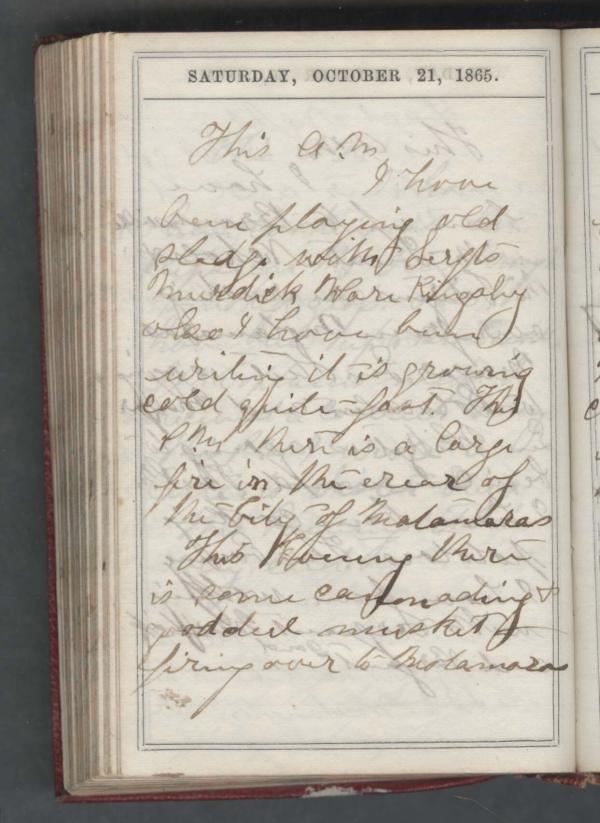 SATURDAY, OCTOBER 21, 1865.
This A.M
I have
been playing old
sledge with Sergts
Murdick Ware Kingsley
also I have been
writing it is growing
cold quite fast. This
P.M. there is a large
fire in the erear of
the City of Matamoras
This Evening there
is some cannonading &
good deel musket
firing over to Matamoras